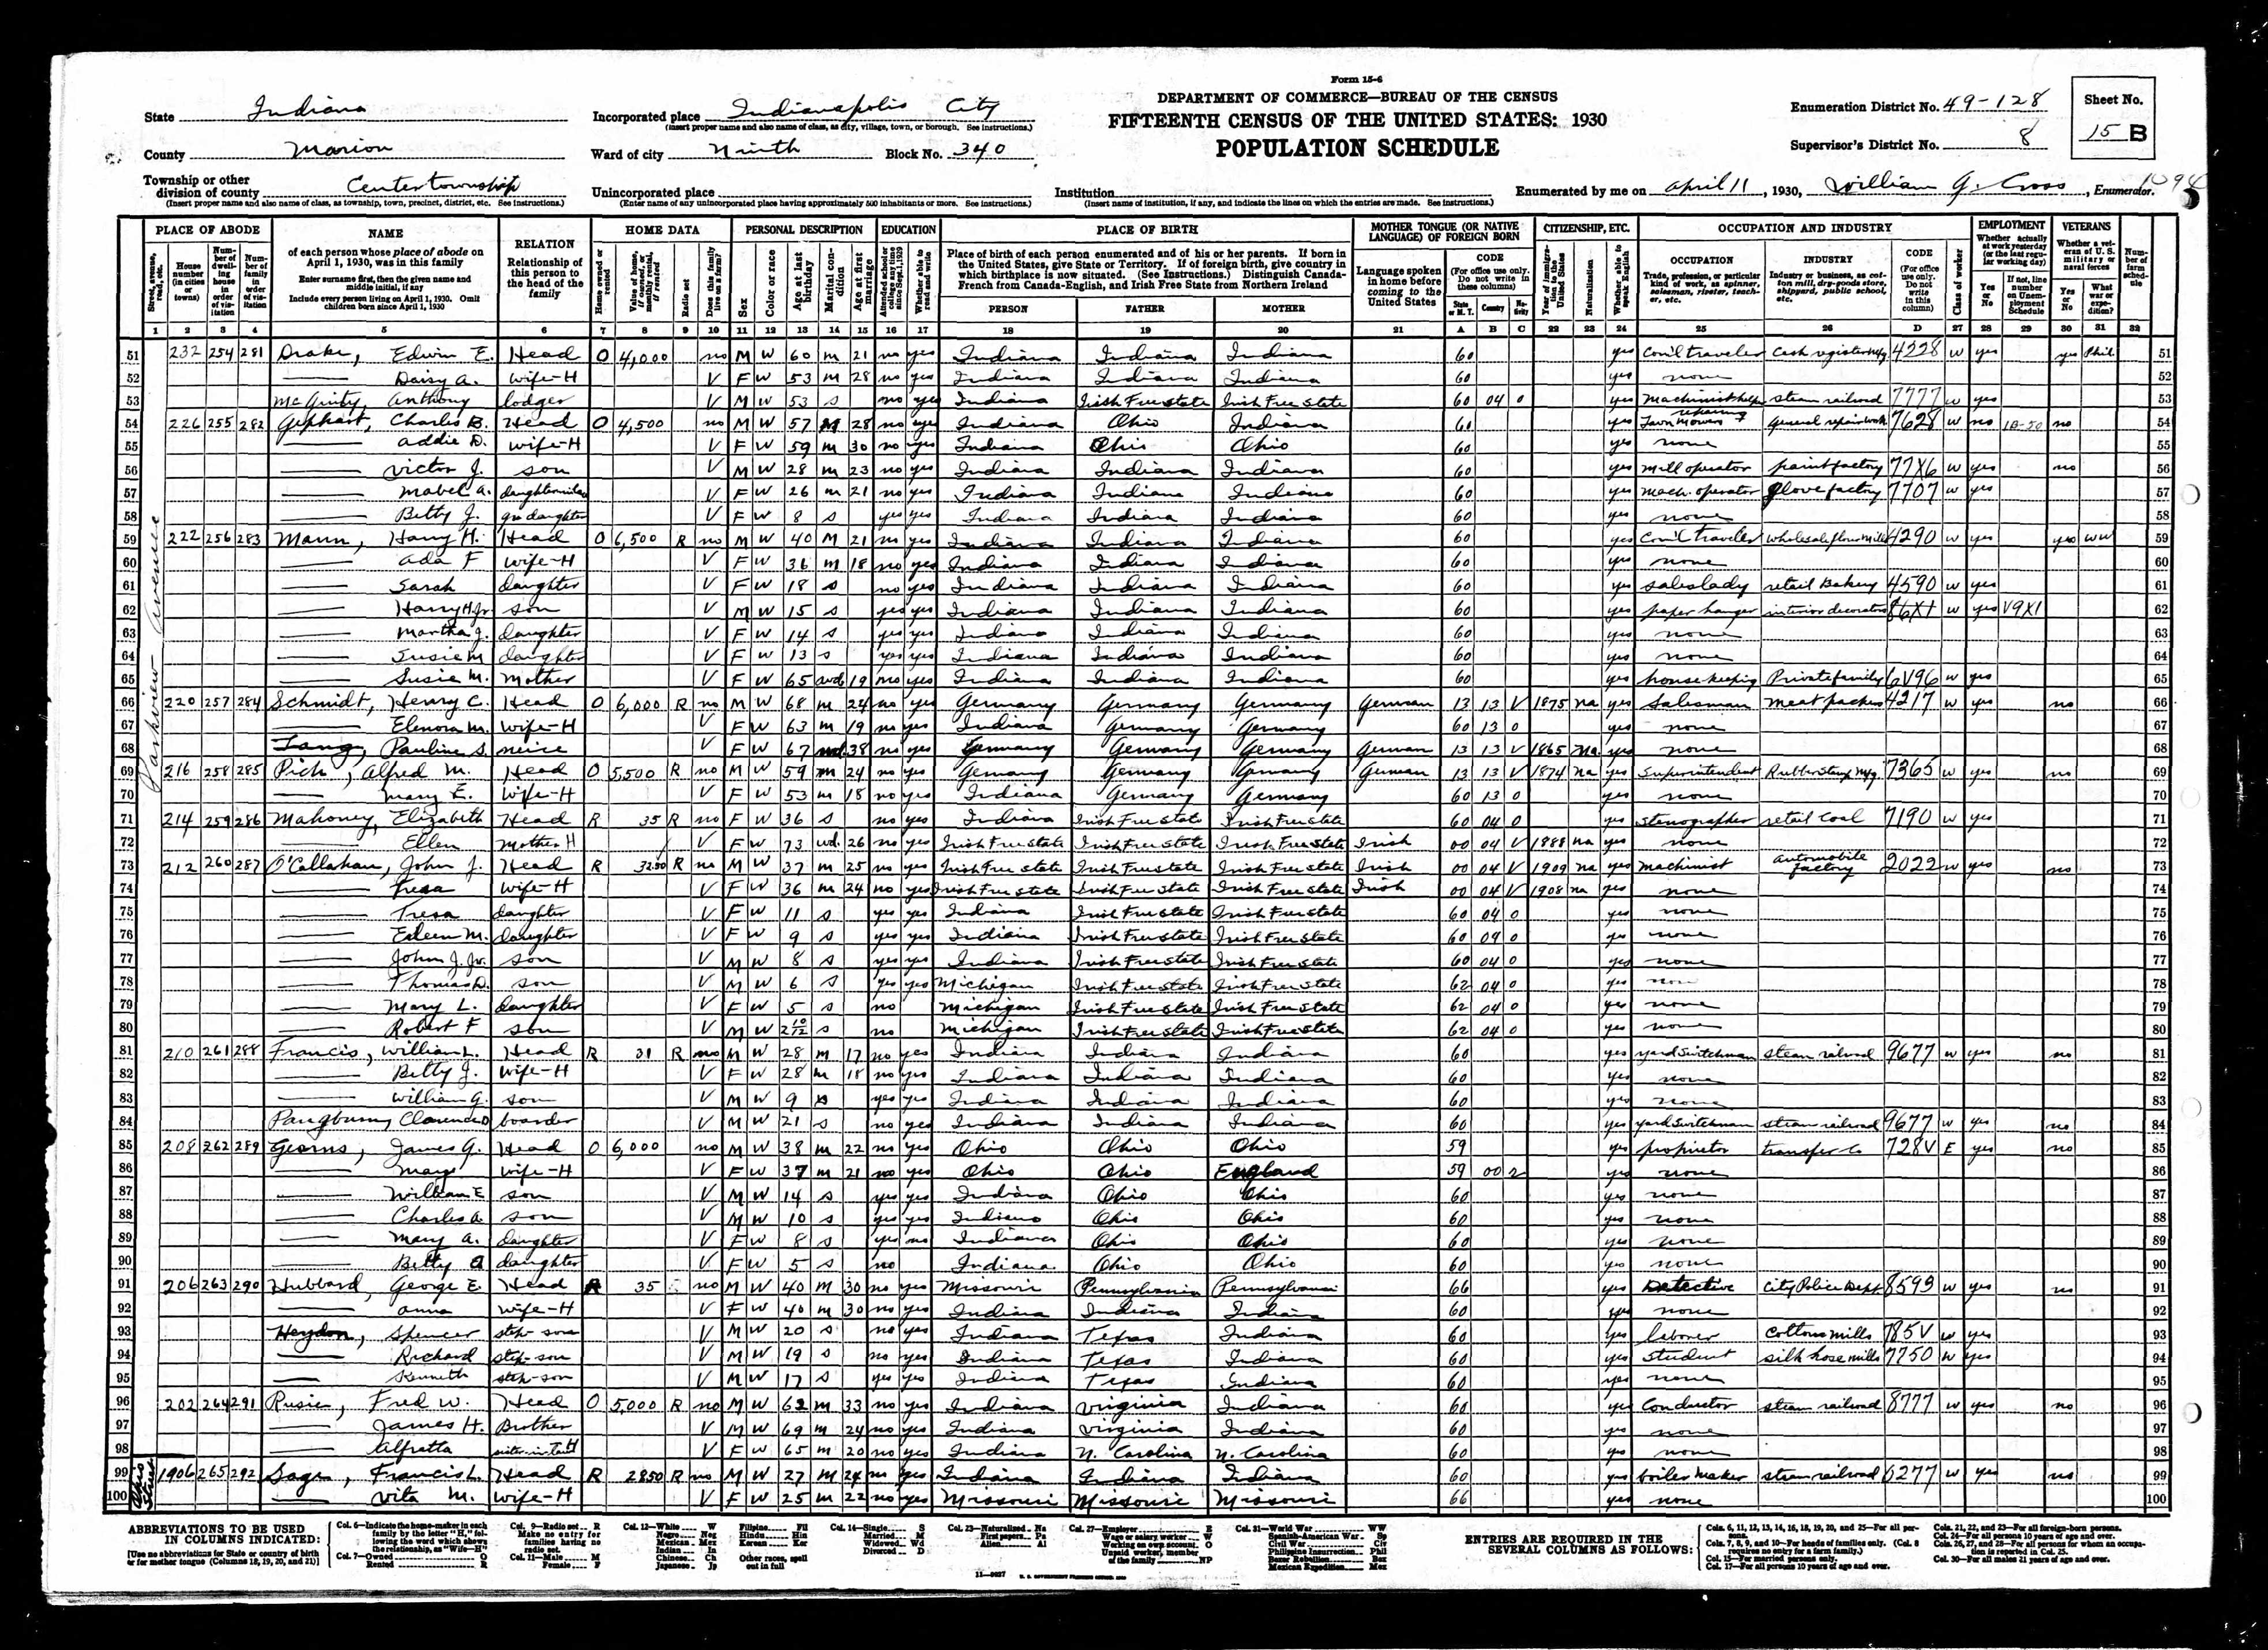 Form 15-6
DEPARTMENT OF COMMERCE—BUREAU OF THE CENSUS
FIFTEENTH CENSUS OF THE UNITED STATES: 1930
POPULATION SCHEDULE
State Indiana
County Marion
Township or other division of county Center township
(Insert proper name and also name of class, as township, town, precinct, district, etc. See instructions.)
Incorporated place Indianapolis City
(Insert proper name and also name of class, as city, village, town, or borough. See instructions.)
Ward of city Ninth Block No. 340
Unincorporated place
(Enter name of any unincorporated place having approximately 500 inhabitants or more. See instructions.)
Institution
(Insert name of institution, if any, and indicate the lines on which the entries are made. See instructions.)
Enumeration District No. 49-128
Supervisor's District No. 8
Sheet No. 15 B
Enumerated by me on April 11, 1930, William G. Cross, Enumerator.
PLACE OF ABODE NAME RELATION HOME DATA PERSONAL DESCRIPTION EDUCATION PLACE OF BIRTH MOTHER TONGUE (OR NATIVE LANGUAGE) OF FOREIGN BORN CITIZENSHIP, ETC. OCCUPATION AND INDUSTRY EMPLOYMENT VETERANS
Parkview Avenue
51 232 254 281 Drake, Edwin E. Head O 4,000 no M W 60 m 21 no yes Indiana Indiana Indiana 60 yes Com'l traveler Cash register mfg 4228 w yes yes Phil 51
52 Daisy A. wife-H V F W 53 m 28 no yes Indiana Indiana Indiana 60 yes none 52
53 McGinty, Anthony lodger V M W 53 s no yes Indiana Irish Free State Irish Free State 60 04 0 yes machinist helper steam railroad 7777 w yes 53
54 226 255 282 Gephart, Charles B. Head O 4,500 no M W 57 M 28 no yes Indiana Ohio Indiana 60 yes Lawn Mower repairing general repair work 7628 w no 1B-50 no 54
55 Addie D. wife-H V F W 59 m 30 no yes Indiana Ohio Ohio 60 yes none 55
56 Victor J. son V M W 28 m 23 no yes Indiana Indiana Indiana 60 yes mill operator paint factory 77X6 w yes no 56
57 Mabel A. daughter in law V F W 26 m 21 no yes Indiana Indiana Indiana 60 yes mach. operator glove factory 7707 w yes 57
58 Betty J. gr daughter V F W 8 s yes yes Indiana Indiana Indiana 60 yes none 58
59 222 256 283 Mann, Harry H. Head O 6,500 R no M W 40 M 21 no yes Indiana Indiana Indiana 60 yes Com'l traveler wholesale flour mill 4290 w yes yes WW 59
60 Ada F wife-H V F W 36 m 18 no yes Indiana Indiana Indiana 60 yes none 60
61 Sarah daughter V F W 18 s no yes Indiana Indiana Indiana 60 yes saleslady retail Bakery 4590 w yes 61
62 Harry H. Jr son V M W 15 s yes yes Indiana Indiana Indiana 60 yes paper hanger interior decorators 86X1 w yes V9X1 62
63 Martha J. daughter V F W 14 s yes yes Indiana Indiana Indiana 60 yes none 63
64 Susie M daughter V F W 13 s yes yes Indiana Indiana Indiana 60 yes none 64
65 Susie M. Mother V F W 65 wd 19 no yes Indiana Indiana Indiana 60 yes house-keeping Private family 6V96 w yes 65
66 220 257 284 Schmidt, Henry C. Head O 6,000 R no M W 68 m 24 no yes Germany Germany Germany German 13 13 V 1875 na yes salesman meat packers 4217 w yes no 66
67 Elenora M. wife-H V F W 63 m 19 no yes Indiana Germany Germany 60 13 0 yes none 67
68 Pauline S. neice V F W 67 wd 38 no yes Germany Germany Germany German 13 13 V 1865 na yes none 68
69 216 258 285 Pich, Alfred M. Head O 5,500 R no M W 59 m 24 no yes Germany Germany Germany German 13 13 V 1874 na yes Superintendent Rubber Stamp Mfg. 7365 w yes no 69
70 Mary E. wife-H V F W 53 m 18 no yes Indiana Germany Germany 60 13 0 yes none 70
71 214 259 286 Mahoney, Elizabeth Head R 35 R no F W 36 s no yes Indiana Irish Free State Irish Free State 60 04 0 yes stenographer retail Coal 7190 w yes 71
72 Ellen Mother H F W 73 wd. 26 no yes Irish Free State Irish Free State Irish Free State Irish 00 04 V 1888 na yes none 72
73 212 260 287 O'Callahan, John J. Head R 32.50 R no M W 37 m 25 no yes Irish Free State Irish Free State Irish Free State Irish 00 04 V 1909 na yes machinist automobile factory 2022 w yes no 73
74 Tresa wife-H V F W 36 m 24 no yes Irish Free State Irish Free State Irish Free State Irish 00 04 V 1908 na yes none 74
75 Tresa daughter V F W 11 s yes yes Indiana Irish Free State Irish Free State 60 04 0 yes none 75
76 Eileen M. daughter V F W 9 s yes yes Indiana Irish Free State Irish Free State 60 04 0 yes none 76
77 John J. Jr. son V M W 8 s yes yes Indiana Irish Free State Irish Free State 60 04 0 yes none 77
78 Thomas D. son V M W 6 s yes yes Michigan Irish Free State Irish Free State 62 04 0 yes none 78
79 Mary L. daughter V F W 5 s no Michigan Irish Free State Irish Free State 62 04 0 yes none 79
80 Robert F son V M W 2 10/12 s no Michigan Irish Free State Irish Free State 62 04 0 yes none 80
81 210 261 288 Francis, William L. Head R 31 R no M W 28 m 17 no yes Indiana Indiana Indiana 60 yes yard Switchman steam railroad 9677 w yes no 81
82 Betty J. wife-H V F W 28 m 18 no yes Indiana Indiana Indiana 60 yes none 82
83 William G. son V M W 9 s yes yes Indiana Indiana Indiana 60 yes none 83
84 Pangburn, Clarence D boarder V M W 21 s no yes Indiana Indiana Indiana 60 yes yard Switchman steam railroad 9677 w yes no 84
85 208 262 289 Gearns, James G. Head O 6,000 no M W 38 m 22 no yes Ohio Ohio Ohio 59 yes proprietor transfer Co 728V E yes no 85
86 Mary wife-H V F W 37 m 21 no yes Ohio Ohio England 59 00 2 yes none 86
87 William E son V M W 14 s yes yes Indiana Ohio Ohio 60 yes none 87
88 Charles A. son V M W 10 s yes yes Indiana Ohio Ohio 60 yes none 88
89 Mary A. daughter V F W 8 s yes no Indiana Ohio Ohio 60 yes none 89
90 Betty A daughter V F W 5 s no Indiana Ohio Ohio 60 yes none 90
91 206 263 290 Hubbard, George E. Head R 35 no M W 40 M 30 no yes Missouri Pennsylvania Pennsylvania 66 yes Detective City Police Dept 8593 w yes no 91
92 Anna wife-H V F W 40 m 30 no yes Indiana Indiana Indiana 60 yes none 92
93 Heydon, Spencer step-son V M W 20 s no yes Indiana Texas Indiana 60 yes laborer cottons mills 785V w yes 93
94 Richard step-son V M W 19 s no yes Indiana Texas Indiana 60 yes student silk hose mills 7750 w yes 94
95 Kenneth step-son V M W 17 s yes yes Indiana Texas Indiana 60 yes none 95
96 202 264 291 Rusie, Fred W. Head O 5,000 R no M W 62 m 33 no yes Indiana Virginia Indiana 60 yes Conductor steam railroad 8777 w yes no 96
97 James H. Brother V M W 69 m 24 no yes Indiana Virginia Indiana 60 yes none 97
98 Alfratta sister-in-law H V F W 65 m 20 no yes Indiana N. Carolina N. Carolina 60 yes none 98
Ohio Street
99 1906 265 292 Sage, Francis L. Head R 28.50 R no M W 27 m 24 no yes Indiana Indiana Indiana 60 yes boiler maker steam railroad 6277 w yes no 99
100 Vita M. wife-H V F W 25 m 22 no yes Missouri Missouri Missouri 66 yes none 100
ABBREVIATIONS TO BE USED IN COLUMNS INDICATED:
[Use no abbreviations for State or country of birth or for mother tongue (Columns 18, 19, 20, and 21)]
ENTRIES ARE REQUIRED IN THE SEVERAL COLUMNS AS FOLLOWS: